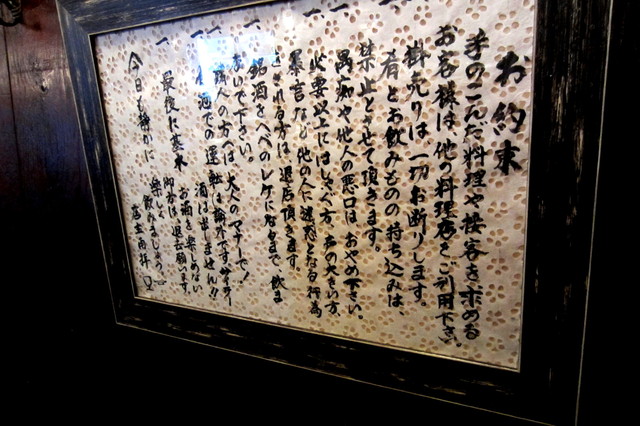 お約束
一、手のこんだ料理や接客を求める
お客様は、他の料理店をご利用下さい。
一、掛売りは、一切お断りします。
一、肴とお飲みものの持ち込みは、
禁止とさせて頂きます。
一、愚痴や他人の悪口は、おやめ下さい。
一、必要以上にはしゃぐ方、声の大きい方、
暴言など、他の人に迷惑となる行為
をされる方は、退店頂きます。
一、銘酒をへべのレケになるまで、飲ま
ないで下さい。
一、隣人の方へは、大人のマナーで!
酒での運転は論外です。
酒は出しません!!
最後に
お酒を楽しめない
御方は、退去願います。
今日も静かに
楽しく
飲みましょう。
店主両拝